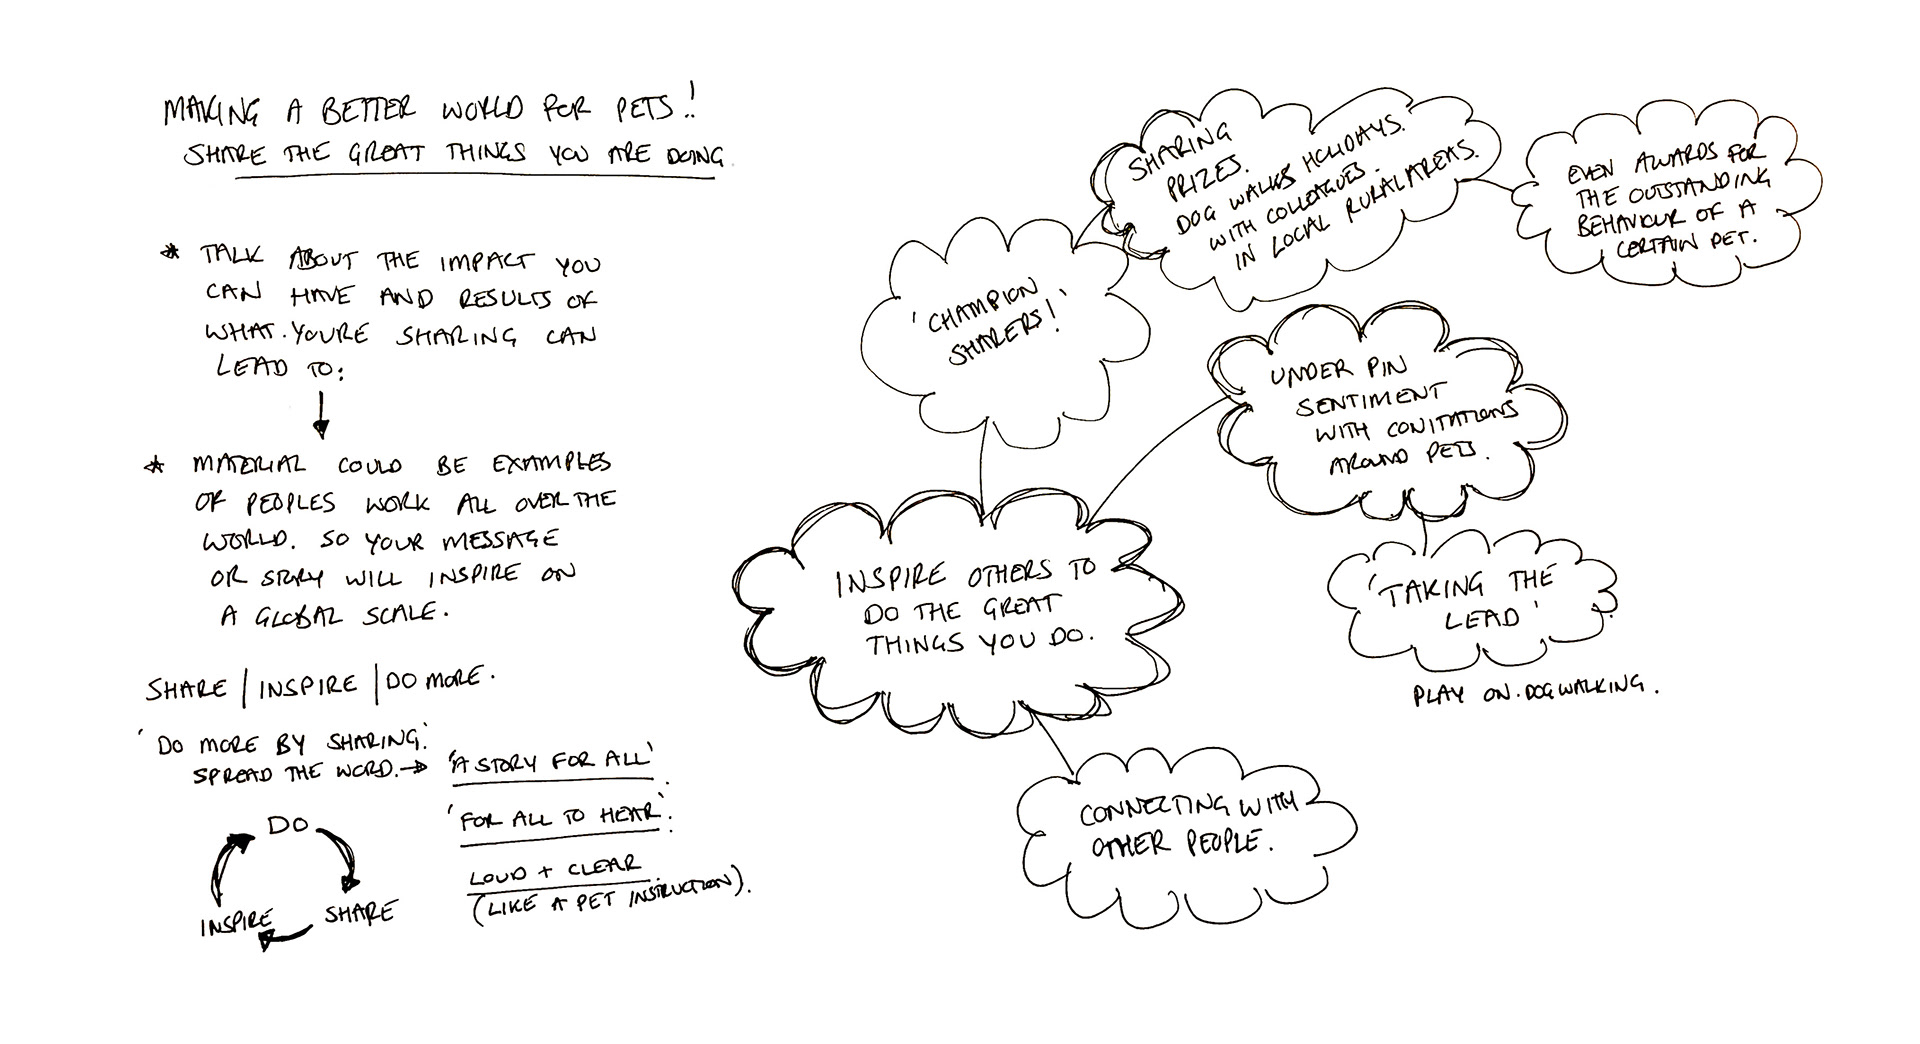 MAKING A BETTER WORLD FOR PETS!!
SHARE THE GREAT THINGS YOU ARE DOING.
* TALK ABOUT THE IMPACT YOU
CAN HAVE AND RESULTS OF
WHAT.YOURE SHARING CAN
LEAD TO:
* MATERIAL COULD BE EXAMPLES
OF PEOPLES WORK ALL OVER THE
WORLD. SO YOUR MESSAGE
OR STORY WILL INSPIRE ON
A GLOBAL SCALE.
SHARE | INSPIRE | DO MORE.
'DO MORE BY SHARING.'
SPREAD THE WORD. →
'A STORY FOR ALL'.
'FOR ALL TO HEAR'.
LOUD + CLEAR.
(LIKE A PET INSTRUCTION).
DO
SHARE
INSPIRE
'CHAMPION
SHARERS!'
SHARING
PRIZES.
DOG WALKS HOLIDAYS.
WITH COLLEAGUES.
IN LOCAL RURAL AREAS.
EVEN AWARDS FOR
THE OUTSTANDING
BEHAVIOUR OF A
CERTAIN PET.
UNDER PIN
SENTIMENT
WITH CONITATIONS
AROUND PETS.
'TAKING THE
LEAD'
PLAY ON.DOG WALKING.
INSPIRE OTHERS TO
DO THE GREAT
THINGS YOU DO.
CONNECTING WITH
OTHER PEOPLE.